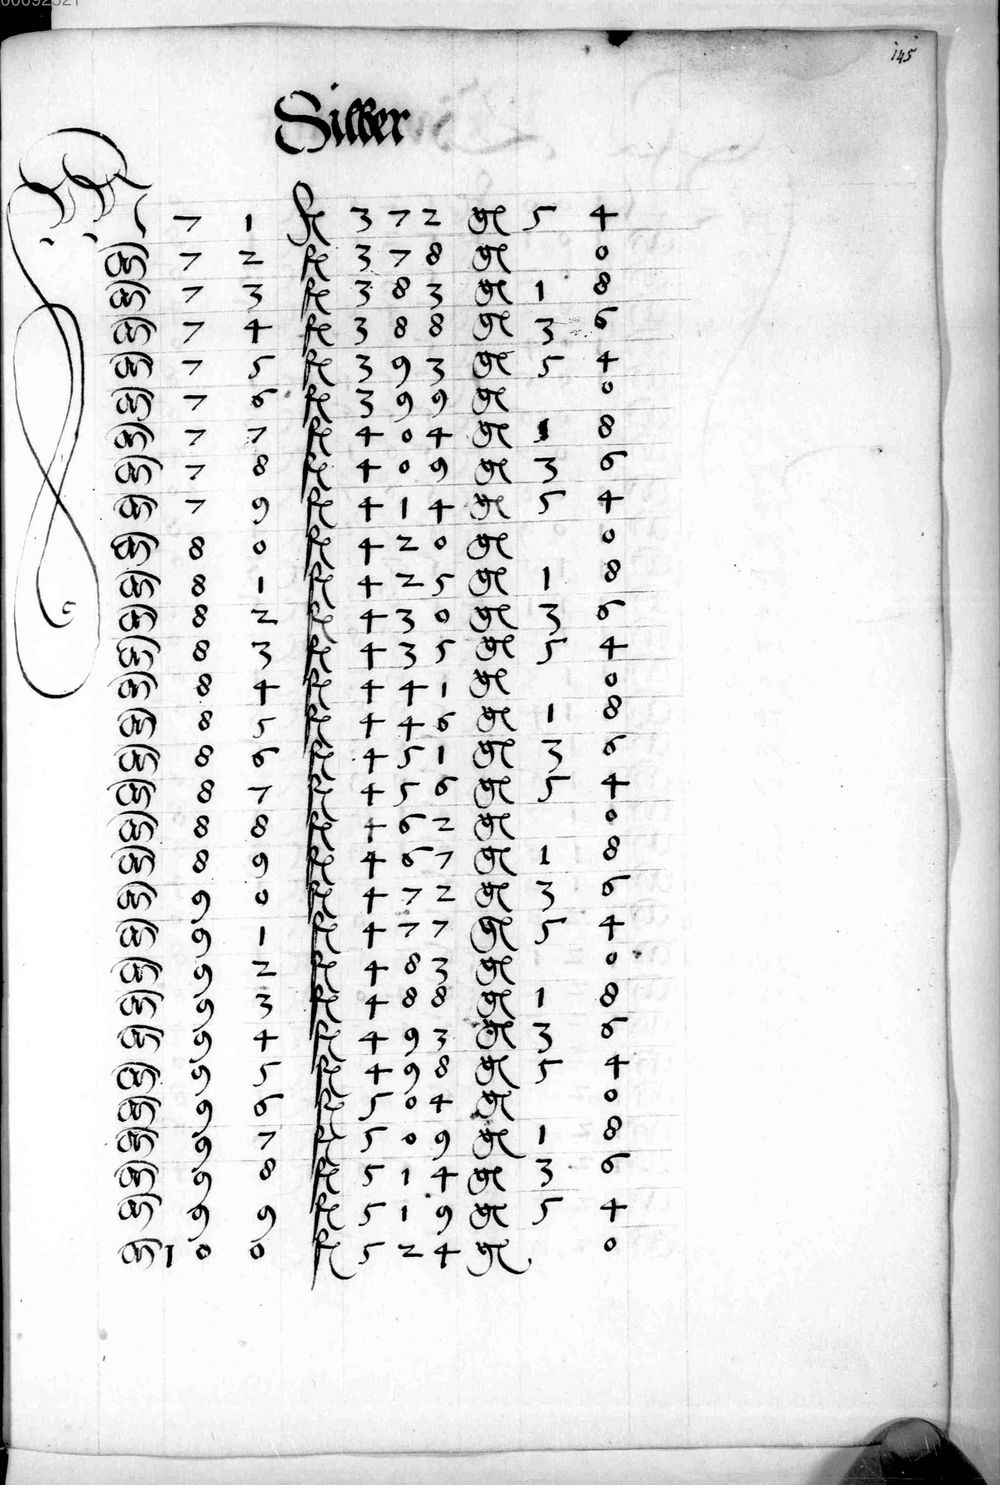 00092321
145
Silber
M 7 1 fl 3 7 2 gl 5 4
M 7 2 fl 3 7 8 gl 0
M 7 3 fl 3 8 3 gl 1 8
M 7 4 fl 3 8 8 gl 3 6
M 7 5 fl 3 9 3 gl 5 4
M 7 6 fl 3 9 9 gl 0
M 7 7 fl 4 0 4 gl 1 8
M 7 8 fl 4 0 9 gl 3 6
M 7 9 fl 4 1 4 gl 5 4
M 8 0 fl 4 2 0 gl 0
M 8 1 fl 4 2 5 gl 1 8
M 8 2 fl 4 3 0 gl 3 6
M 8 3 fl 4 3 5 gl 5 4
M 8 4 fl 4 4 1 gl 0
M 8 5 fl 4 4 6 gl 1 8
M 8 6 fl 4 5 1 gl 3 6
M 8 7 fl 4 5 6 gl 5 4
M 8 8 fl 4 6 2 gl 0
M 8 9 fl 4 6 7 gl 1 8
M 9 0 fl 4 7 2 gl 3 6
M 9 1 fl 4 7 7 gl 5 4
M 9 2 fl 4 8 3 gl 0
M 9 3 fl 4 8 8 gl 1 8
M 9 4 fl 4 9 3 gl 3 6
M 9 5 fl 4 9 8 gl 5 4
M 9 6 fl 5 0 4 gl 0
M 9 7 fl 5 0 9 gl 1 8
M 9 8 fl 5 1 4 gl 3 6
M 9 9 fl 5 1 9 gl 5 4
M 1 0 0 fl 5 2 4 gl 0